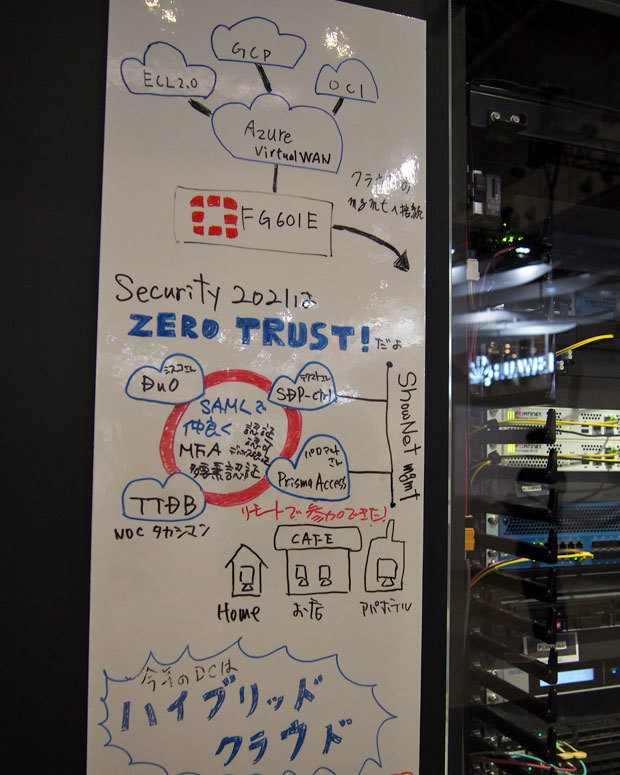 GCP
ECL2.0
OCI
Azure
VirtualWAN
クラウドの
mgmtへ接続
FG601E
Security 2021は
ZERO TRUST!だよ
シスコさん
DUO
SDP-ctrl
SAMLで
仲良く
認証
認可
MFA
多要素認証
パロアルト
さん
Prisma Access
ShowNet mgmt
TTDB
NOC タカシマン
リモートで参加できた!
CAFE
Home
お店
アパホテル
今年のDCは
ハイブリッド
クラウド
HUAWEI
FORTINET